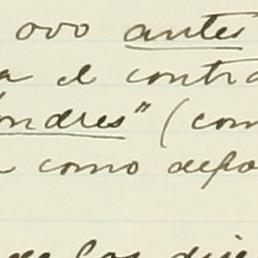 ovo antes
a el contra
ondres" (com
como depo
de los dife